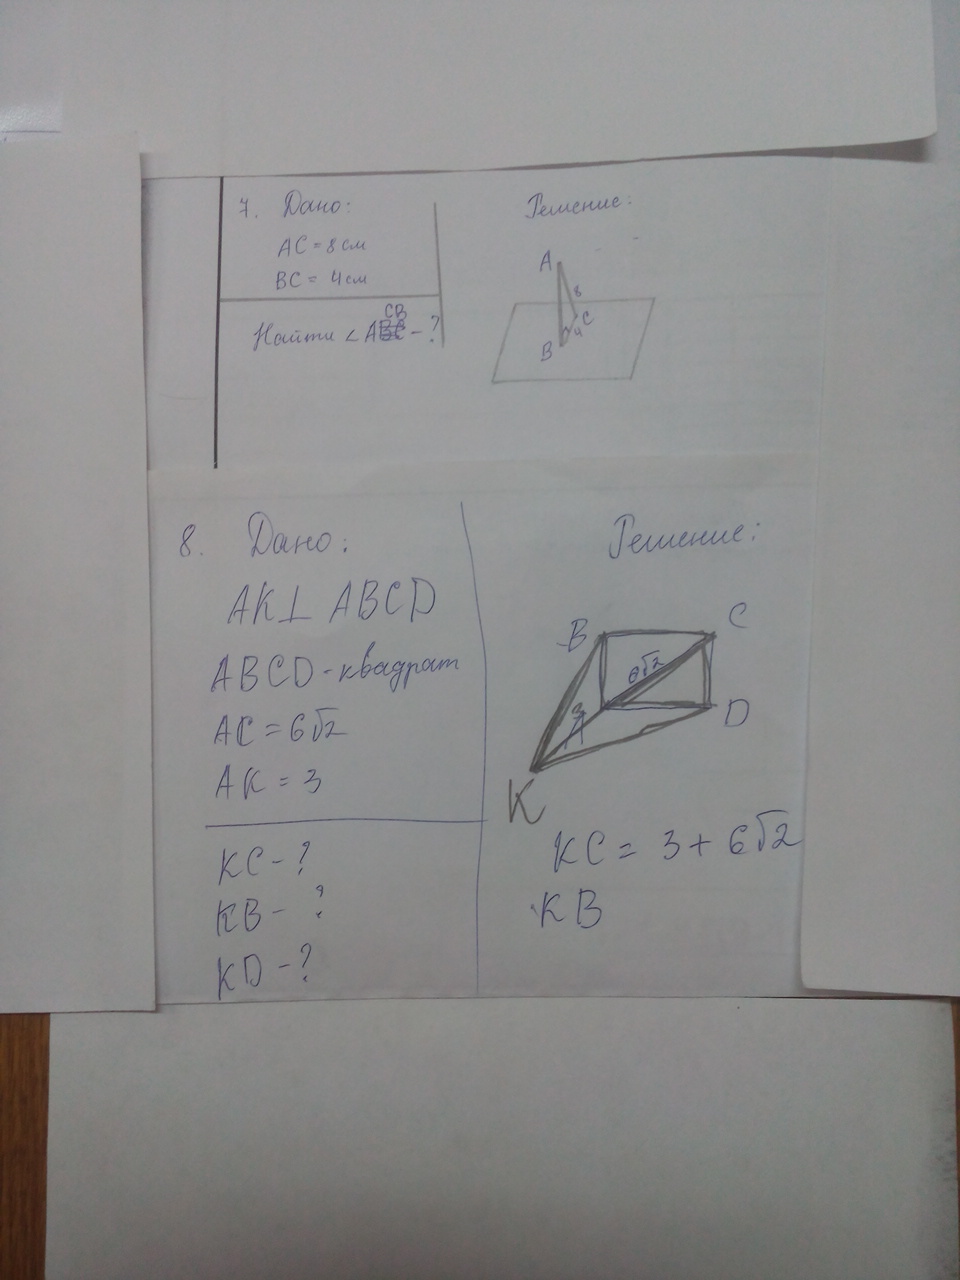 7. Дано:
AC = 8 см
BC = 4 см
CB
Найти ∠A - ?
Решение:
A
8
C
4
B
8. Дано:
AK⊥ ABCD
ABCD - квадрат
AC = 6√2
AK = 3
KC - ?
KB - ?
KD - ?
Решение:
B
C
6√2
3
A
D
K
KC = 3 + 6√2
KB